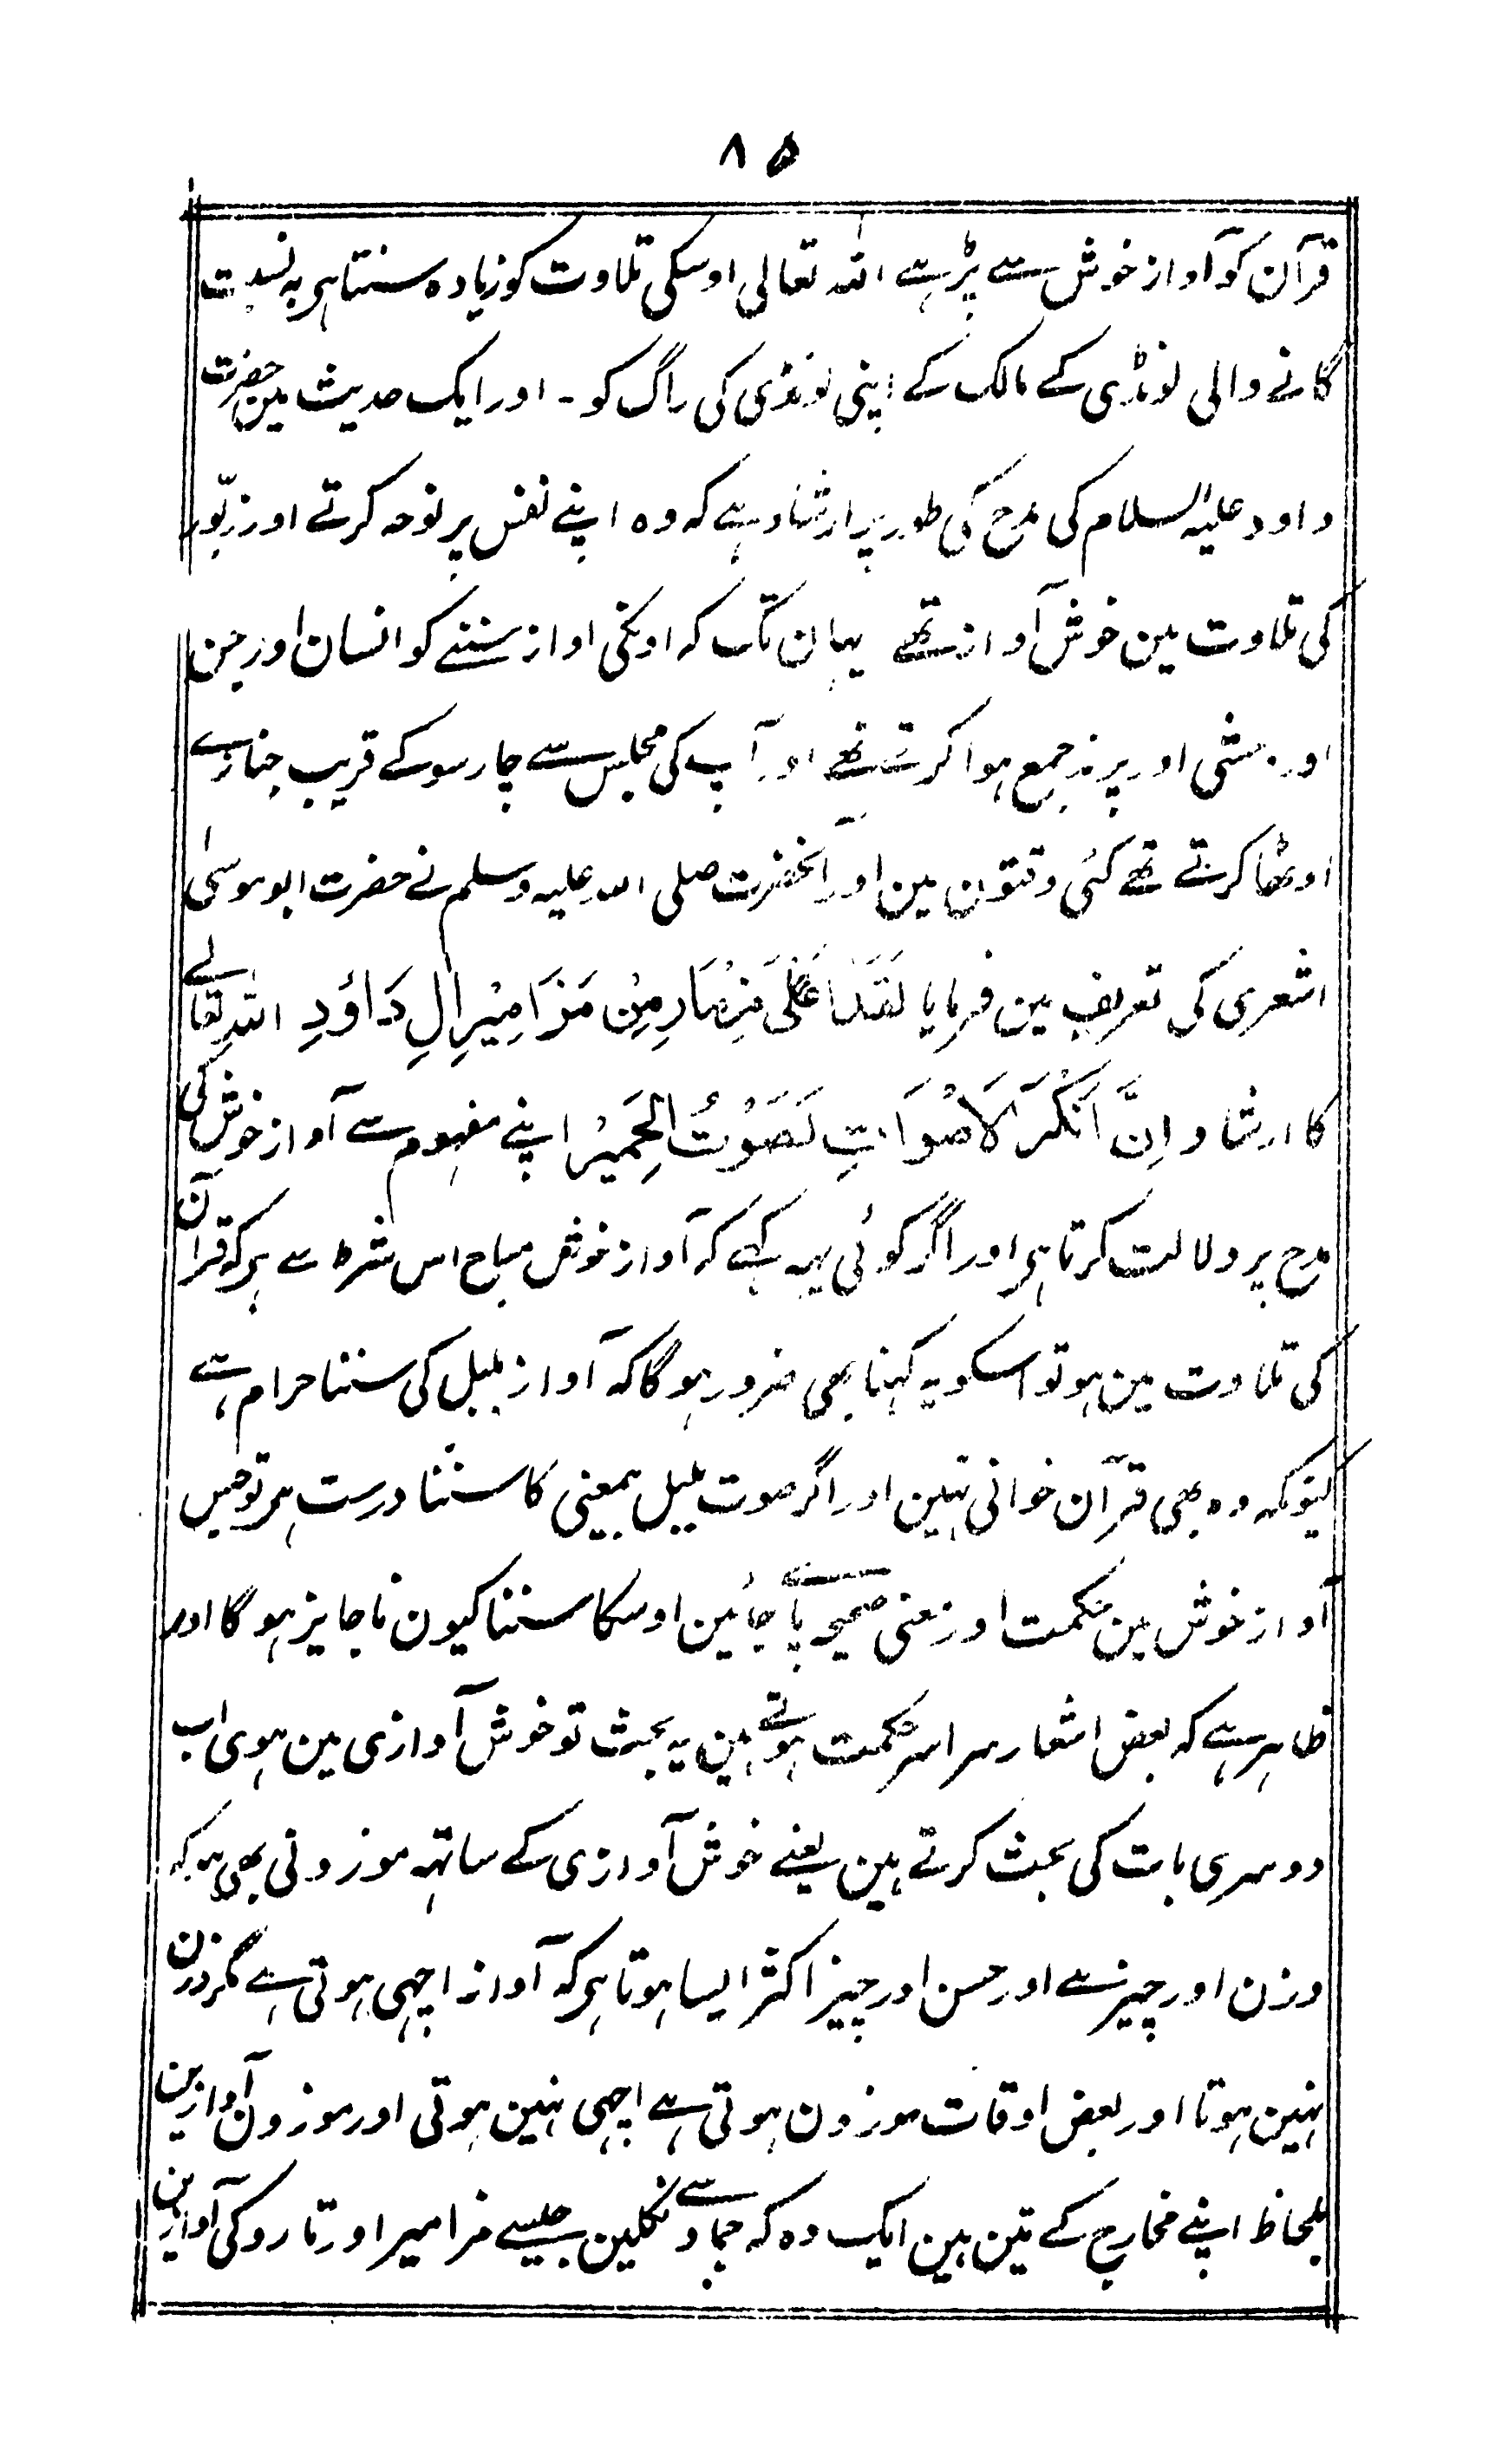 ۸۵
قرآن کو آواز خوش سے پڑہے اللہ تعالی اوسکی تلاوت کو زیادہ سنتا ہی بہ نسبت
گانے والی لونڈی کے مالک کے اپنی لونڈی کی راگ کو ۔ اور ایک حدیث مین حضرت
داود علیہ السلام کی مدح کی طور پر ارشاد ہے کہ وہ اپنے نفس پر نوحہ کرتے اور زبور
کی تلاوت مین خوش آواز تھے یہان تک کہ اونکی اواز سننے کو انسان اور جن
اور وحشی اور پرند جمع ہوا کرتے تھے اور آپ کی مجلس سے چار سو کے قریب جنازے
اوٹھا کرتے تھے کئی وقتون مین اور آنحضرت صلی اللہ علیہ وسلم نے حضرت ابو موسیٰ
اشعری کی تعریف مین فرمایا لَقَد مِزمَارِ مِنْ مَزَامِیْرِاٰلِ دَاوٗدِ اللہ تعالے
کا ارشاد اِنَّ اَنْکَرَ الاَصْوَاتِ لَصَوْتُ الحَمِیْر اپنے مفہوم سے آواز خوش کی
مدح پر دلالت کرتا ہی اور اگر کوئی یہہ کہے کہ آواز خوش مباح اس شرط سے ہی کہ قرآن
کی تلاوت مین ہو تو اسکو یہ کہنا بھی ضرور ہو گا کہ آواز بلبل کی سننا حرام ہے
کیونکہ وہ بھی قرآن خوانی نہین اور اگر صوت بلبل بمعنی کا سننا درست ہی تو جس
آواز خوش مین حکمت اور معنی صحیح پائے جائین اوسکا سننا کیون ناجایز ہو گا اور
ظاہر ہے کہ بعض اشعار سراسر حکمت ہوتے ہین یہ بحث تو خوش آوازی مین ہوی اب
دوسری بات کی بحث کرتے ہین یعنے خوش آوازی کے ساتہہ موزونی بھی ہو کہ
وزن اور چیز ہے اور حسن اور چیز اکثر ایسا ہوتا ہی کہ آواز اچہی ہوتی ہے مگر وزن
نہین ہوتا اور بعض اوقات موزون ہوتی ہے اچہی نہین ہوتی اور موزون آوازین
بلحاظ اپنے مخارج کے تین ہین ایک وہ کہ جماد سے نکلین جیسے مزامیر اور تارو کی آوازین